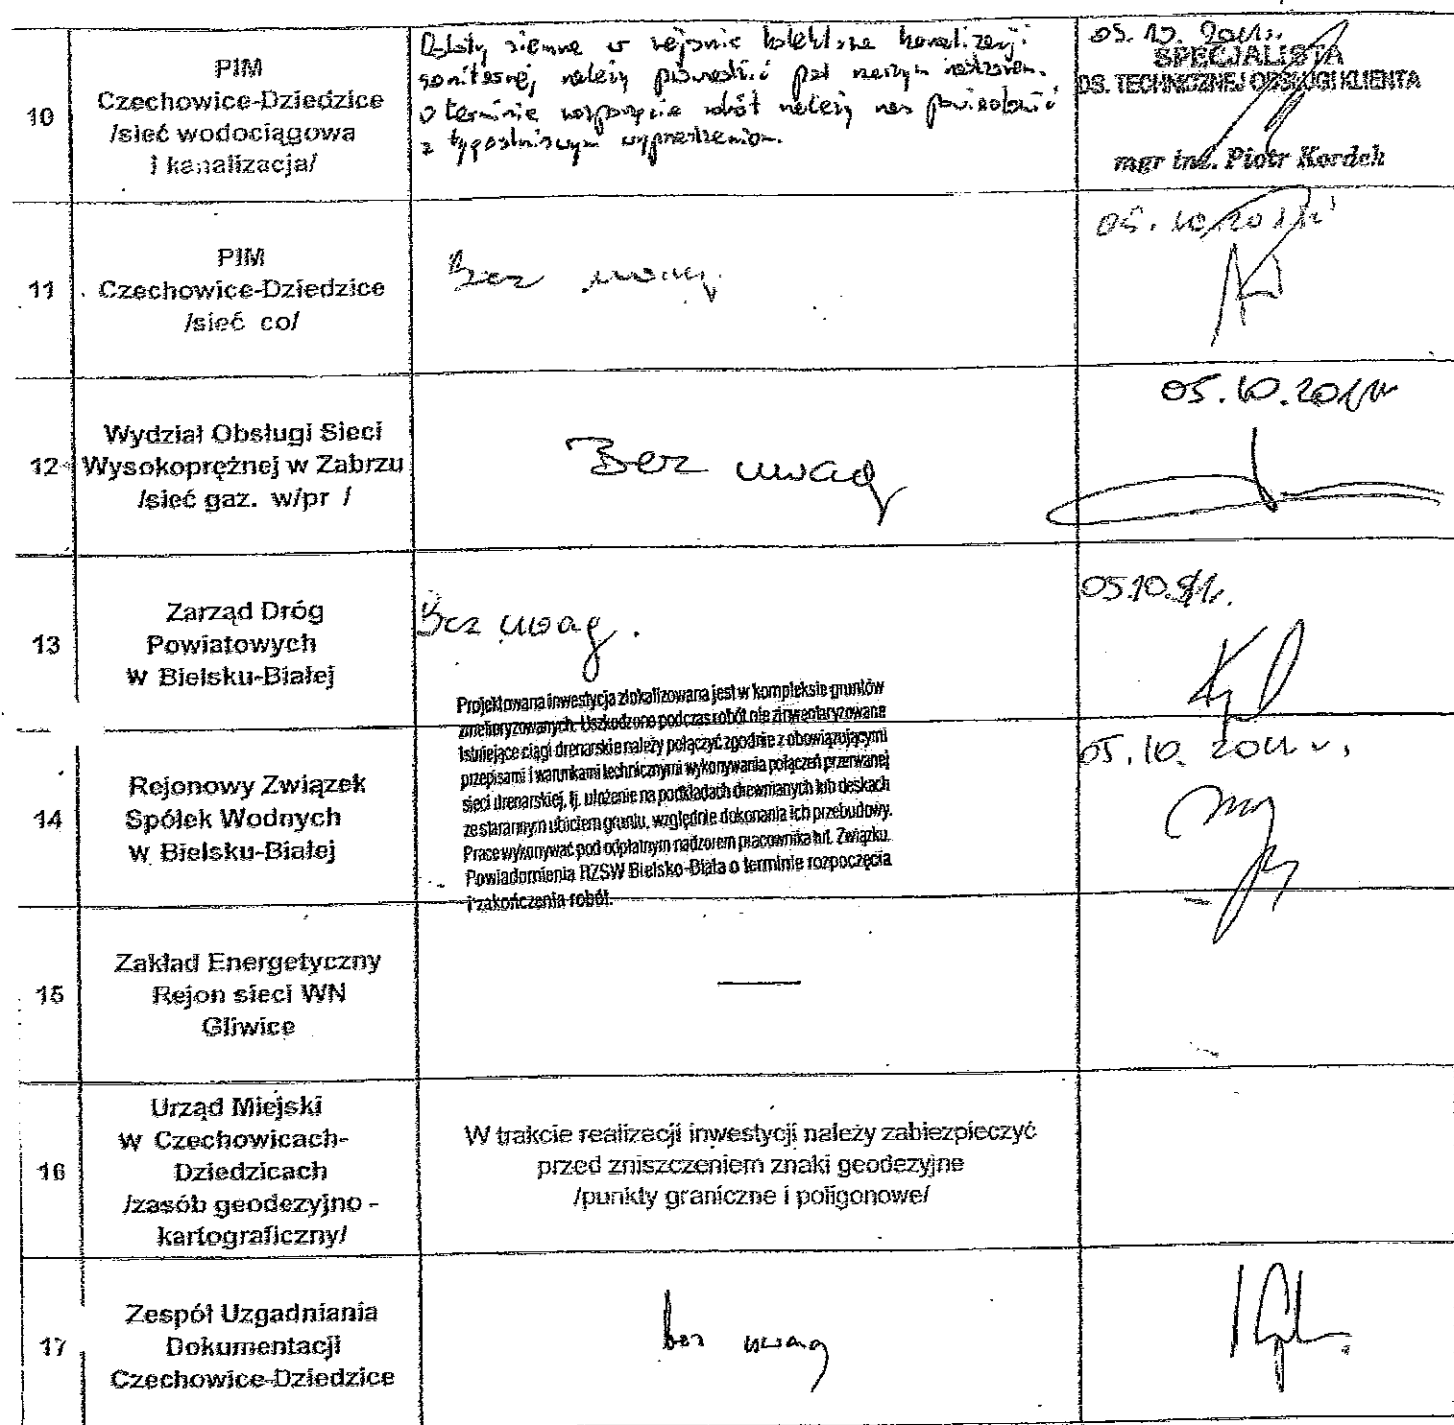 10
PIM
Czechowice-Dziedzice
/sieć wodociągowa
i kanalizacja/
ziemne w rejonie kanalizacji
sanitarnej należy pod naszym nadzorem.
o terminie robót należy nas powiadomić
z tygodniowym wyprzedzeniem.
05.10.2011r.
SPECJALISTA
DS. TECHNICZNEJ OBSŁUGI KLIENTA
mgr inż. Piotr Kordek
11
PIM
Czechowice-Dziedzice
/sieć co/
Bez uwag.
05.10.2011r
12
Wydział Obsługi Sieci
Wysokoprężnej w Zabrzu
/sieć gaz. w/pr /
Bez uwag
05.10.2011r
13
Zarząd Dróg
Powiatowych
w Bielsku-Białej
Bez uwag.
05.10.
14
Rejonowy Związek
Spółek Wodnych
w Bielsku-Białej
Projektowana inwestycja zlokalizowana jest w kompleksie gruntów
zmelioryzowanych. Uszkodzone podczas robót nie zinwentaryzowane
istniejące ciągi drenarskie należy połączyć zgodnie z obowiązującymi
przepisami i warunkami technicznymi wykonywania połączeń przerwanej
sieci drenarskiej, tj. ułożenie na podkładach drewnianych lub deskach
ze starannym ubiciem gruntu, względnie dokonania ich przebudowy.
Prace wykonywać pod odpłatnym nadzorem pracownika tut. Związku.
Powiadomienia RZSW Bielsko-Biała o terminie rozpoczęcia
i zakończenia robót.
05.10.2011 r.
15
Zakład Energetyczny
Rejon sieci WN
Gliwice
—
16
Urząd Miejski
w Czechowicach-
Dziedzicach
/zasób geodezyjno -
kartograficzny/
W trakcie realizacji inwestycji należy zabiezpieczyć
przed zniszczeniem znaki geodezyjne
/punkty graniczne i poligonowe/
17
Zespół Uzgadniania
Dokumentacji
Czechowice-Dziedzice
bez uwag